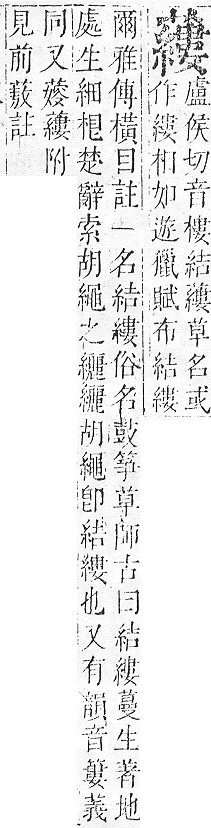 蔞盧侯切音樓結蔞草名或
作縷相如遊獵賦布結縷
爾雅傅橫目註一名結縷俗名鼓箏草師古曰結縷蔓生著地
處生細根楚辭索胡繩之纚纚胡繩卽結縷也又有韻音簍義
同又蔆蔞附
見前蔜註